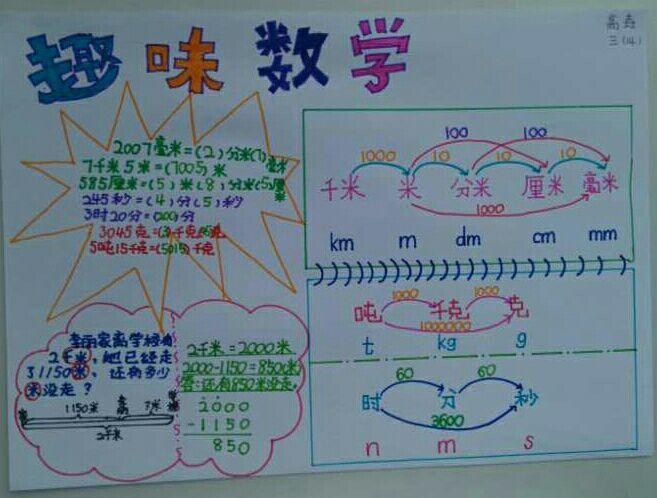 趣味数学
三(14)
2007毫米=(2)分米(7)毫米
7千米5米=(7005)米
585厘米=(5)米(8)分米(5)厘米
245秒=(4)分(5)秒
3时20分=(200)分
3045克=(3)千克(45)克
5吨15千克=(5015)千克
100 100
1000 10 10 10
千米 米 分米 厘米 毫米
1000
km m dm cm mm
1000 1000
吨 千克 克
1000000
t kg g
60 60
时 分 秒
3600
n m s
家离学校有
2千米,她已经走
了1150米,还有多少
米没走?
1150米 ?米
2千米
2千米=2000米
2000-1150=850(米)
答:还有850米没走。
2000
-1150
850